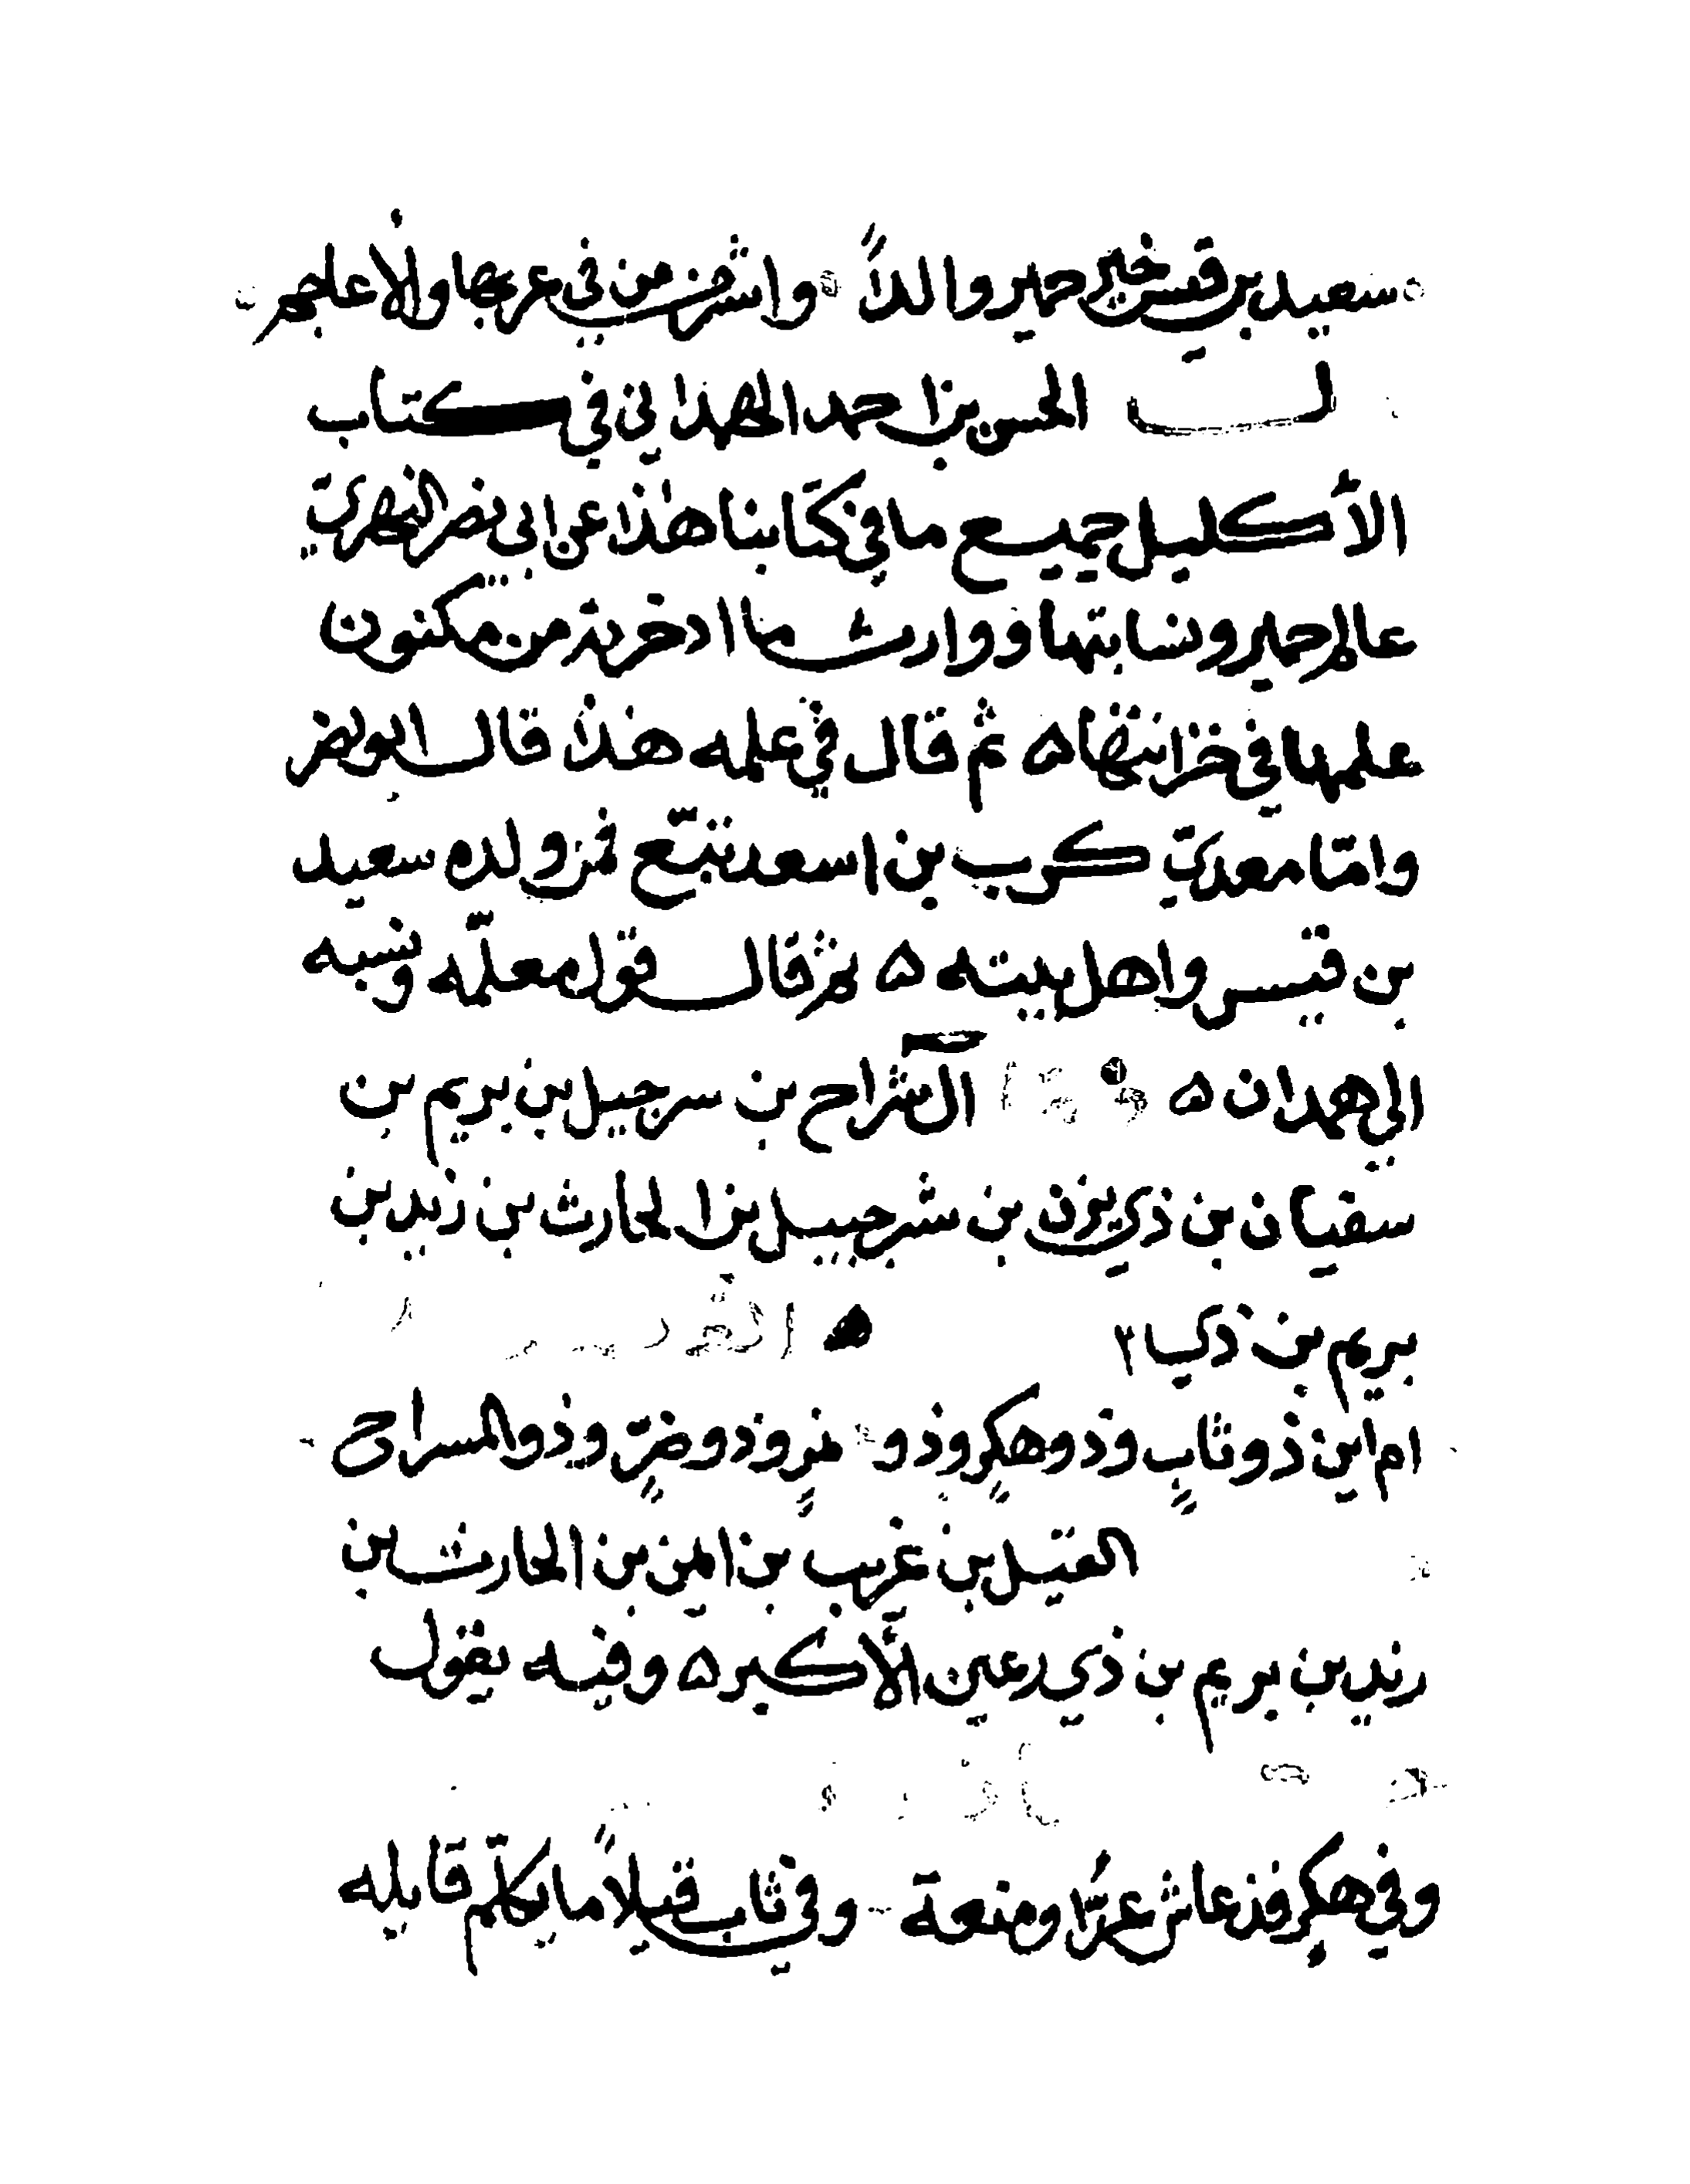 سعيد بن قيس خير حمير والداً واشرف من في عربها والأعاجم
الحسن بن احمد الهمداني في كتاب
الأكليل جميع ما في كتابنا هذا عن ابي نصر البهري
عالم حمير ونسابتها ووارث ما ادخرته من مكنون
علمها في خزانتها ۵ ثم قال في علمه هذا قال ابو نصر
وامّا معدي كرب بن اسعد تبّع فمن ولده سعيد
بن قيس واهل بيته ۵ ثم قال قول معلمّه ونسبه
الي همدان ۵ آل شراح بن شرحبيل بن بريم بن
سفيان بن ذي يزن بن شرحبيل بن الحارث بن زيد بن
بريم بن ذي
ام ابين ذو ثابٍ وذو هكرٍ وذو وذو وذو المسراح
القيل بن غريب بن ايمن بن الحارث بن
زيد بن بريم بن ذي رعين الأكبر ۵ وفيه يقول
وفي هكر قد عاش عزّا ومنعة وفي ثاب قيلاً ما يكلّم قايله